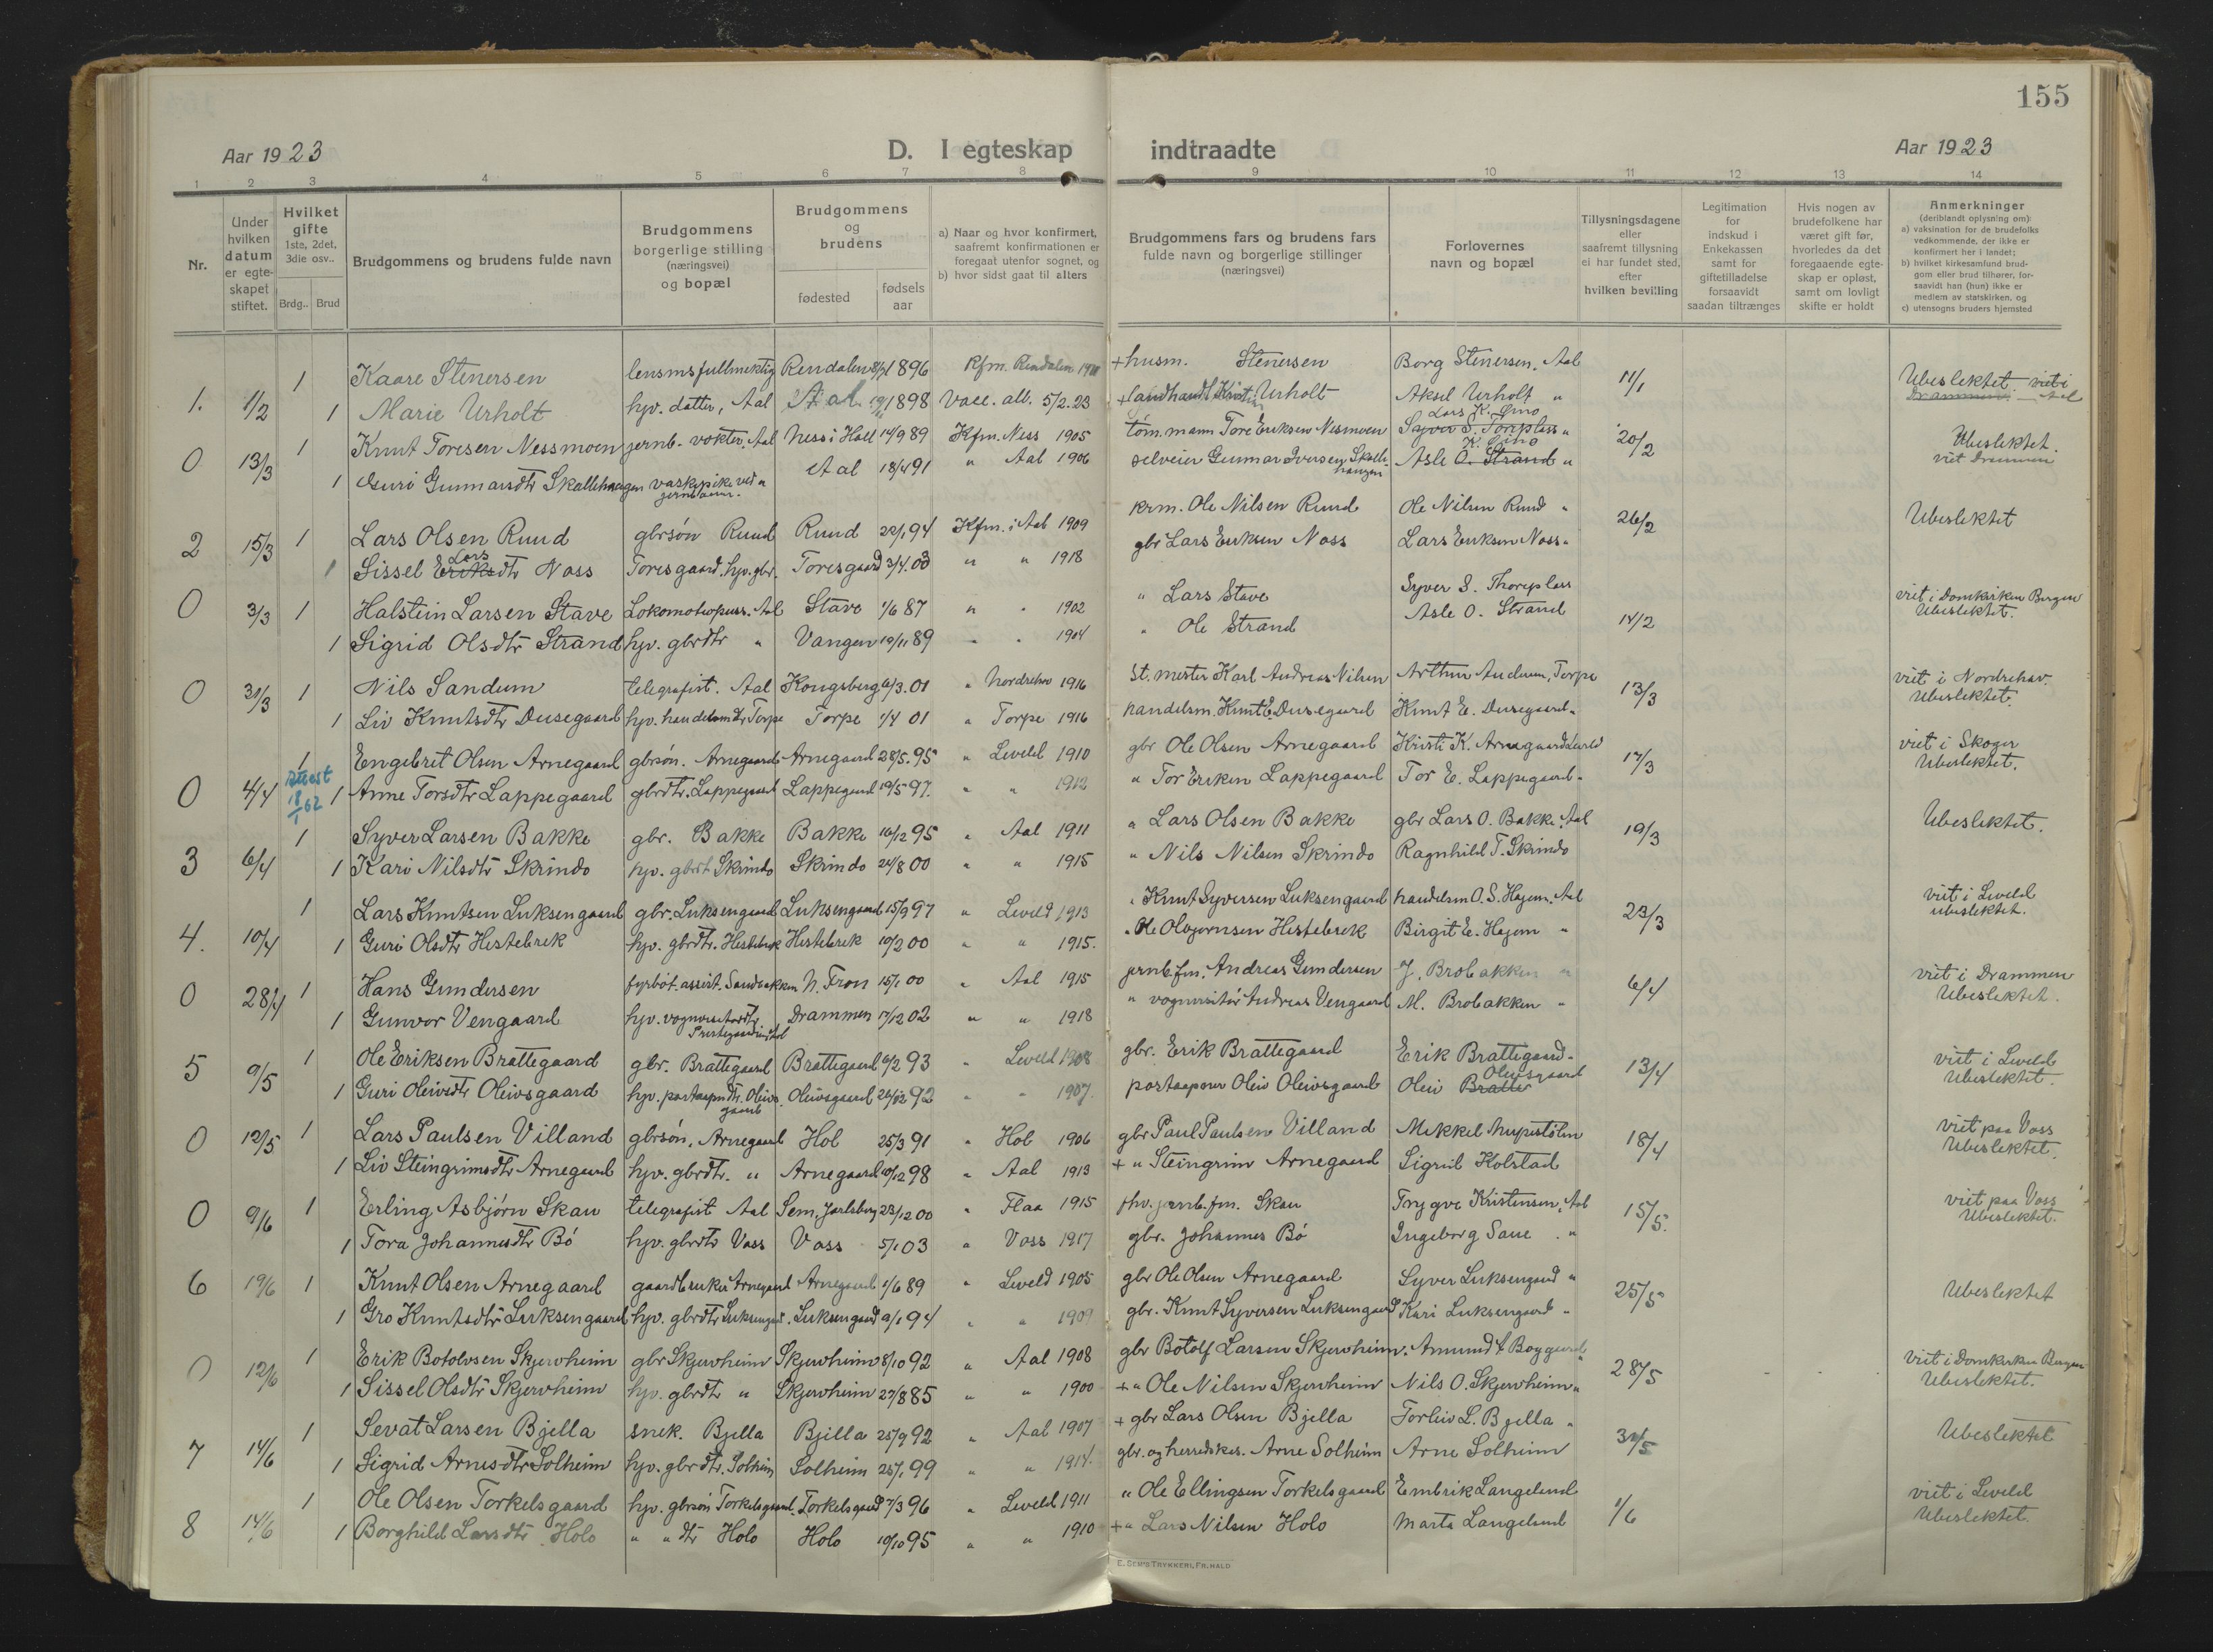 155
Aar 1923
D. I egteskap indtraadte
Aar 1923
1 2 3 4 5 6 7 8 9 10 11 12 13 14
Nr.
Under hvilken datum er egte-skapet stiftet.
Hvilket gifte 1ste, 2det, 3die osv..
Brdg.. Brud
Brudgommens og brudens fulde navn
Brudgommens borgerlige stilling (næringsvei) og bopæl
Brudgommens og brudens
fødested
fødsels aar
a) Naar og hvor konfirmert, saafremt konfirmationen er foregaat utenfor sognet, og
b) hvor sidst gaat til alters
Brudgommens fars og brudens fars fulde navn og borgerlige stillinger (næringsvei)
Forlovernes navn og bopæl
Tillysningsdagene eller saafremt tillysning ei har fundet sted, efter hvilken bevilling
Legitimation for indskud i Enkekassen samt for giftetilladelse forsaavidt saadan tiltrænges
Hvis nogen av brudefolkene har været gift før, hvorledes da det foregaaende egte-skap er opløst, samt om lovligt skifte er holdt
Anmerkninger (deriblandt oplysning om):
a) vaksination for de brudefolks vedkommende, der ikke er konfirmert her i landet;
b) hvilket kirkesamfund brud-gom eller brud tilhører, for-saavidt han (hun) ikke er medlem av statskirken, og
c) utensogns bruders hjemsted
1. 1/2 1 Kaare Stenersen lensmsfullmektig Rendalen 1896 Kfm. Rendalen + husm. Stenersen Borg Stenersen, Aal 11/1 Ubeslektet. viet i Drammen. Aal
1 Marie Urholt hjv. datter, Aal Aal 1898 Vacc. att. 5/2.23 + landhandl. Urholt Aksel Urholt "
0 13/3 1 Knut Toresen Nessmoen jernb. vokter, Aal Ness i Hall 14/9 89 Kfm. Ness 1905 tóm. mann Tore Eriksen Nesmoen Lars K. Syver S. Torpless " 20/2 Ubeslektet. viet Drammen
1 Guri Gunnarsdtr Skallehaugen vaskepike ved Aal 18/4 91 " Aal 1906 selveier Gunnar Iversen Skallehaugen Asle O. Strand "
2 15/3 1 Lars Olsen Ruud gbrsón Ruud Ruud 22/1 94 Kfm. i Aal 1909 krm. Ole Nilsen Ruud Ole Nilsen Ruud " 26/2 Ubeslektet
1 Sissel Eriks Lars dtr Noss Toresgaard. hjv. gbr. Toresgaard 3/4.03 " " 1918 gbr Lars Eriksen Noss Lars Eriksen Noss "
0 3/3 1 Halstein Larsen Stave Lokomotivpuss. Aal Stave 1/6 87 " " 1902 " Lars Stave Syver S. Thorpless 14/2 viet i Domkirken Bergen Ubeslektet.
1 Sigrid Olsdtr Strand hjv. gbrdtr " Vangen 19/11 89 " " 1904 " Ole Strand Asle O. Strand
0 31/3 1 Nils Sandum telegrafist. Aal Kongsberg 6/3.01 " Nordrehov 1916 St. mester Karl Andreas Nilsen Arthur Andersen, Torpe 13/3 viet i Nordrehov. Ubeslektet.
1 Liv Knutsdtr Dusegaard hjv. handelsm.dtr Torpe Torpe 1/4 01 " Torpe 1916 handelsm. Knut E. Dusegaard Knut E. Dusegaard "
0 4/4 1 Engebret Olsen Arnegaard gbrsón. Arnegaard Arnegaard 28/5.95 " Leveld 1910 gbr Ole Olsen Arnegaard Kristi K. Arnegaard Leveld 17/3 viet i Skoger Ubeslektet.
Attest 18/1 62
1 Anne Torsdtr Lappegaard gbrdtr. Lappegaard Lappegaard 19/5 97. " " 1912 " Tor Eriksen Lappegaard Tor E. Lappegaard "
3 6/4 1 Syver Larsen Bakke gbr. Bakke Bakke 16/12 95 " Aal 1911 " Lars Olsen Bakke gbr Lars O. Bakke, Aal 19/3 Ubeslektet.
1 Kari Nilsdtr Skrindo hjv. gbrdt Skrindo Skrindo 24/8 00 " " 1915 " Nils Nilsen Skrindo Ragnhild T. Skrindo
4. 10/4 1 Lars Knutsen Luksengaard gbr. Luksengaard Luksengaard 15/9 97 " Leveld 1913 " Knut Syversen Luksengaard handelsm O. S. Hagen, Aal 23/3 viet i Leveld ubeslektet.
1 Guri Olsdtr Hestebrek hjv. gbrdtr. Hestebrek Hestebrek 19/2 00 " " 1915. " Ole Olbjørnsen Hestebrek Birgit E. Hagen "
0 28/4 1 Hans Gundersen fyrbót. assist. Sandbakken N. Fron 15/1 00 " Aal 1915 jernb.fm. Andreas Gundersen J. Brobakken " 6/4 viet i Drammen Ubeslektet.
1 Gunvor Vengaard hjv. vognvisitørdtr Drammen 17/12 02 " " 1918 " vognvisitór Andreas Vengaard M. Brobakken "
5 9/5 1 Ole Eriksen Brattegaard gbr. Brattegaard Brattegaard 6/2 93 " Leveld 1908 gbr. Erik Brattegaard Erik Brattegaard " 13/4 viet i Leveld Ubeslektet.
1 Guri Oleivsdtr Oleivsgaard hjv. postaapndtr. Oleivsgaard Oleivsgaard 26/12 92 " " 1907. postaapner Oleiv Oleivsgaard Oleiv Bratte Oleivsgaard
0 12/5 1 Lars Paulsen Villand gbrsón, Arnegaard Hol 25/3 91 " Hol 1906 gbr Paul Paulsen Villand Mekkel Nupestólen 18/4 viet paa Voss Ubeslektet.
1 Liv Steingrimsdtr Arnegaard hjv. gbrdtr. " Arnegaard 10/12 98 " Aal 1913 + " Steingrim Arnegaard Sigrid Kolstad
0 9/6 1 Erling Asbjórn Skau telegrafist Aal Sem, Jarlsberg 23/12 00 " Flaa 1915 fhv. jernb.fm. Skau Trygve Kristensen, Aal 15/5. viet paa Voss Ubeslektet.
1 Tora Johannesdtr Bó hjv. gbrdtr Voss Voss 5/1 03 " Voss 1917 gbr. Johannes Bó Ingeborg Saue "
6 19/6 1 Knut Olsen Arnegaard gaardbruker Arnegaard Arnegaard 1/6 89 " Leveld 1905 gbr Ole Olsen Arnegaard Syver Luksengaard " 25/5 Ubeslektet
1 Gro Knutsdtr Luksengaard hjv. gbrdtr Luksengaard. Luksengaard 9/1 94 " " 1909 gbr. Knut Syversen Luksengaard Kari Luksengaard "
0 12/6 1 Erik Botolvsen Skjervheim gbr Skjervheim Skjervheim 8/10 92 " Aal 1908 gbr Botolf Larsen Skjervheim. Amund 28/5 Viet i Domkirken Bergen Ubeslektet.
1 Sissel Olsdtr Skjervheim hjv. gbrdtr " Skjervheim 27/8 85 " " 1900 + " Ole Nilsen Skjervheim Nils O. Skjervheim "
7 14/6 1 Sevat Larsen Bjella snek. Bjella Bjella 25/9 92 " Aal 1907 + gbr Lars Olsen Bjella Torleiv L. Bjella " 31/5 Ubeslektet
1 Sigrid Arnesdtr Solheim hjv. gbrdtr. Solheim Solheim 25/1 99 " " 1914. gbr. og herredskas. Arne Solheim Arne Solheim
8 14/6 1 Ole Olsen Torkelsgaard hjv. gbrsón Torkelsgaard. Torkelsgaard 7/3 96 " Leveld 1911 " Ole Ellingsen Torkelsgaard Embrik Langelund 1/6 viet i Leveld Ubeslektet.
1 Borghild Larsdtr Holo " " dtr Holo Holo 19/10 95 " " 1910 + " Lars Nilsen Holo Marta Langelund
E. SEM'S TRYKKERI, FR.HALD